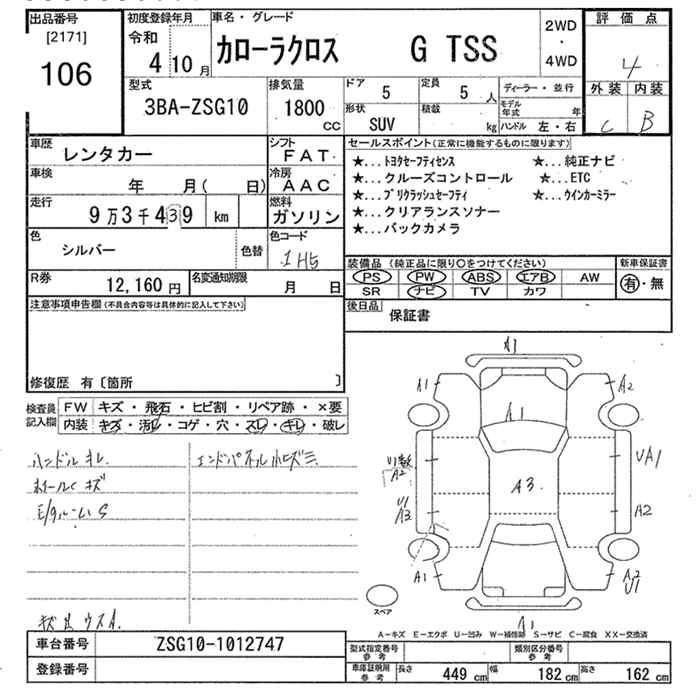 出品番号
[2171]
106
初度登録年月
令和
4 10月
車名・グレード
カローラクロス G TSS
2WD
・
4WD
評価点
4
外装 内装
C B
型式
3BA-ZSG10
排気量
1800 CC
ドア 5
定員 5 人
形状 SUV
積載 kg
ディーラー・並行
モデル年式 年
ハンドル 左・右
車歴 レンタカー
シフト FAT
車検 年 月( 日)
冷房 AAC
走行 9万3千439 km
燃料 ガソリン
色 シルバー
色替
色コード 1H5
R券 12,160円
名変通知期限 月 日
セールスポイント(正常に機能するものに限ります)
★...トヨタセーフティセンス ★...純正ナビ
★...クルーズコントロール ★...ETC
★...プリクラッシュセーフティ ★...ウインカーミラー
★...クリアランスソナー
★...バックカメラ
装備品(純正品に限り○をつけてください)
新車保証書
PS PW ABS エアB AW
SR ナビ TV カワ
有・無
後日品 保証書
注意事項申告欄(不具合内容等は具体的に記入して下さい)
修復歴 有〔箇所 〕
検査員記入欄
FW キズ・飛石・ヒビ割・リペア跡・×要
内装 キズ・汚レ・コゲ・穴・スレ・キレ・破レ
ハンドル キレ
ホイール キズ
キズ 凹 ウスA
A1
A1
A2
A1
U1
A2
UA1
A3
U1
A3
A2
A1
A2
U1
A1
スペア
A-キズ E-エクボ U-凹み W-補修跡 S-サビ C-腐食 XX-交換済
車台番号 ZSG10-1012747
登録番号
型式指定番号 参考
類別区分番号 参考
車庫証明用 参考
長さ 449 cm
幅 182 cm
高さ 162 cm